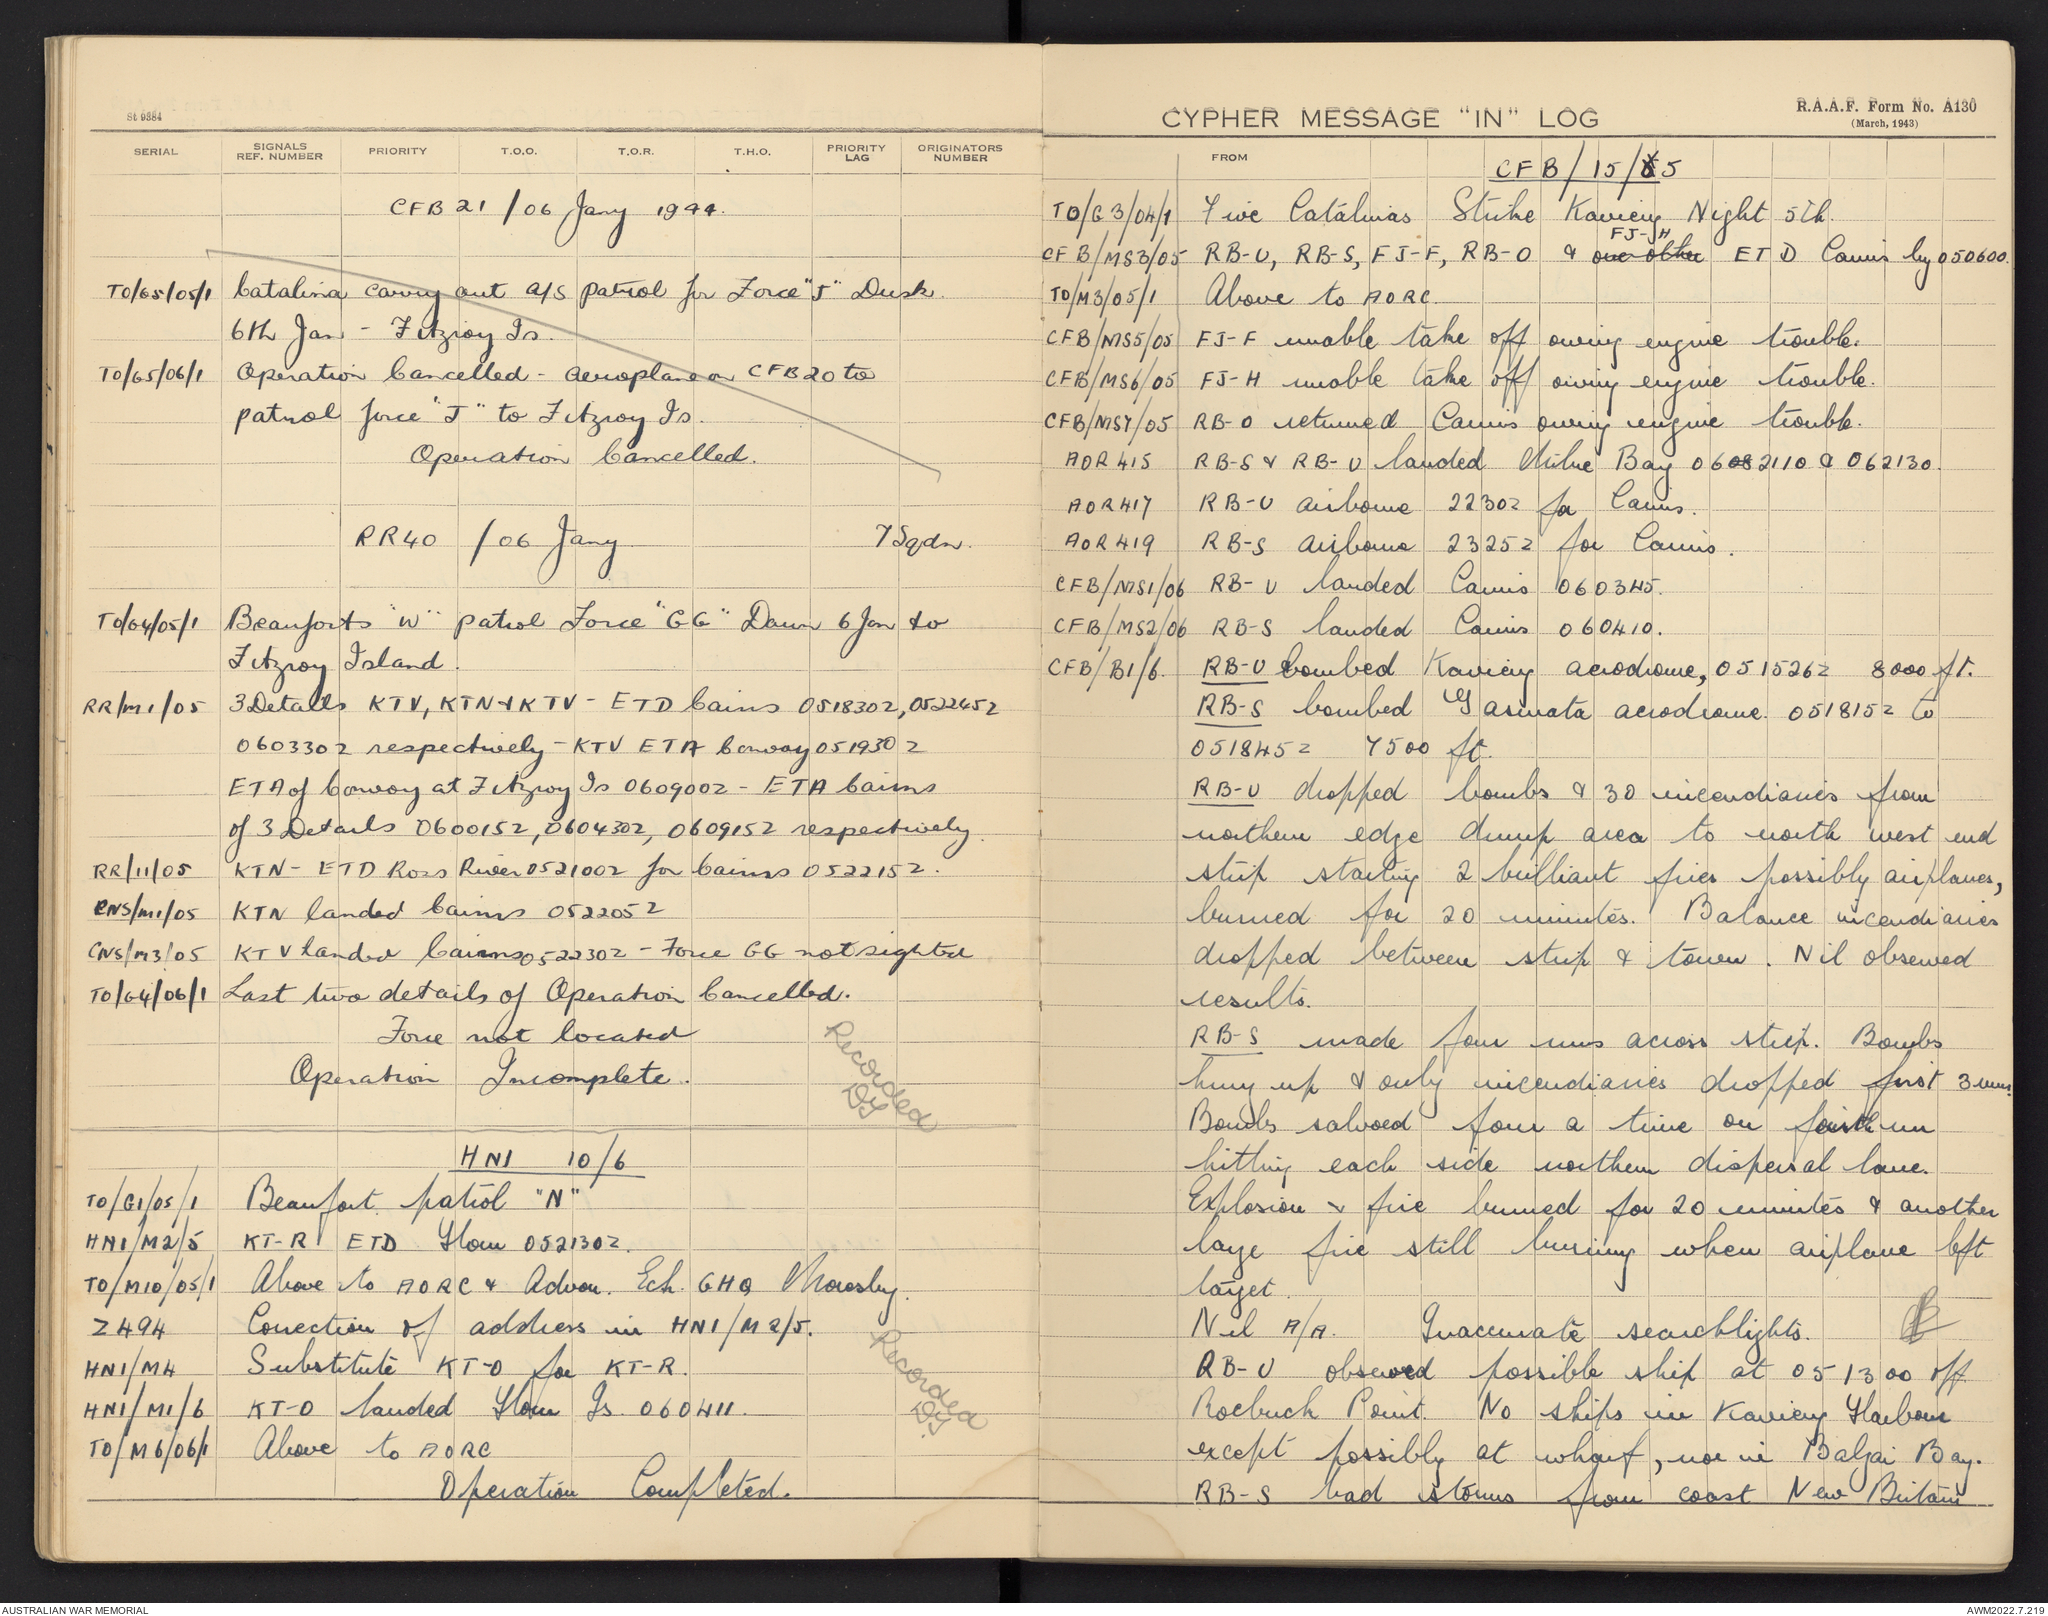 St 9384
SERIAL
SIGNALS
REF. NUMBER
PRIORITY
T.O.O.
T.O.R.
T.H.O.
PRIORITY
LAG
ORIGINATORS
NUMBER
CFB 21 / 06 Jany 1944.
TO/G5/05/1 Catalina carry out A/S patrol for Force "J" Dusk
6th Jan - Fitzroy Is.
TO/G5/06/1 Operation Cancelled - aeroplane on CFB20 to
patrol force "J" to Fitzroy Is.
Operation Cancelled.
RR40 /06 Jany 7 Sqdn.
TO/G4/05/1 Beauforts "W" patrol Force "GG" Dawn 6 Jan to
Fitzroy Island.
RR/M1/05 3 Details KTV, KTN & KTV - ETD Cairns 051830Z, 052245Z
060330Z respectively - KTV ETA Convoy 051930Z
ETA of Convoy at Fitzroy Is 060900Z - ETA Cairns
of 3 Details 060015Z, 060430Z, 060915Z respectively
RR/11/05 KTN - ETD Ross River 052100Z for Cairns 052215Z.
CNS/M1/05 KTN landed Cairns 052205Z
CNS/M3/05 KTV landed Cairns 052230Z - Force GG not sighted
TO/G4/06/1 Last two details of Operation Cancelled.
Force not located
Operation Incomplete.
Recorded
DJ
HN1 10/6
TO/G1/05/1 Beaufort patrol "N"
HN1/M2/5 KT-R ETD Horn 052130Z.
TO/M10/05/1 Above to AORC & Advon. Ech. GHQ Moresby.
Z494 Correction of address in HN1/M2/5.
HN1/M4 Substitute KT-O for KT-R.
HN1/M1/6 KT-O landed Horn Is. 060411.
TO/M6/06/1 Above to AORC
Operation Completed.
Recorded
DJ.
CYPHER MESSAGE "IN" LOG
R.A.A.F. Form No. A130
(March, 1943)
FROM
CFB/15/5
TO/G3/04/1 Five Catalinas Strike Kavieng Night 5th.
FJ-H
CFB/MS3/05 RB-U, RB-S, FJ-F, RB-O & one other ETD Cairns by 050600.
TO/M3/05/1 Above to AORC
CFB/MS5/05 FJ-F unable take off owing engine trouble.
CFB/MS6/05 FJ-H unable take off owing engine trouble.
CFB/MS7/05 RB-O returned Cairns owing engine trouble.
AOR415 RB-S & RB-U landed Milne Bay 062110 & 062130.
AOR417 RB-U airborne 2230Z for Cairns.
AOR419 RB-S airborne 2325Z for Cairns.
CFB/MS1/06 RB-U landed Cairns 060345.
CFB/MS2/06 RB-S landed Cairns 060410.
CFB/B1/6. RB-U bombed Kavieng aerodrome, 051526Z 8000 ft.
RB-S bombed Gasmata aerodrome 051815Z to
051845Z 7500 ft.
RB-U dropped bombs & 30 incendiaries from
northern edge dump area to north west end
strip starting 2 brilliant fires possibly airplanes,
burned for 20 minutes. Balance incendiaries
dropped between strip & town. Nil observed
results.
RB-S made four runs across strip. Bombs
hung up & only incendiaries dropped first 3 runs.
Bombs salvoed four a time on fourth run
hitting each side northern dispersal lane.
Explosion & fire burned for 20 minutes & another
large fire still burning when airplane left
target.
Nil A/A. Inaccurate searchlights.
RB-U observed possible ship at 051300 off
Roebuck Point. No ships in Kavieng Harbour
except possibly at wharf, nor in Balgai Bay.
RB-S had storms from coast New Britain
AUSTRALIAN WAR MEMORIAL
AWM2022.7.219